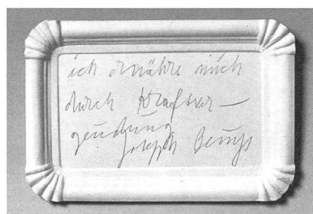 ich ernähre mich
durch Kraftver-
geudung
Joseph Beuys